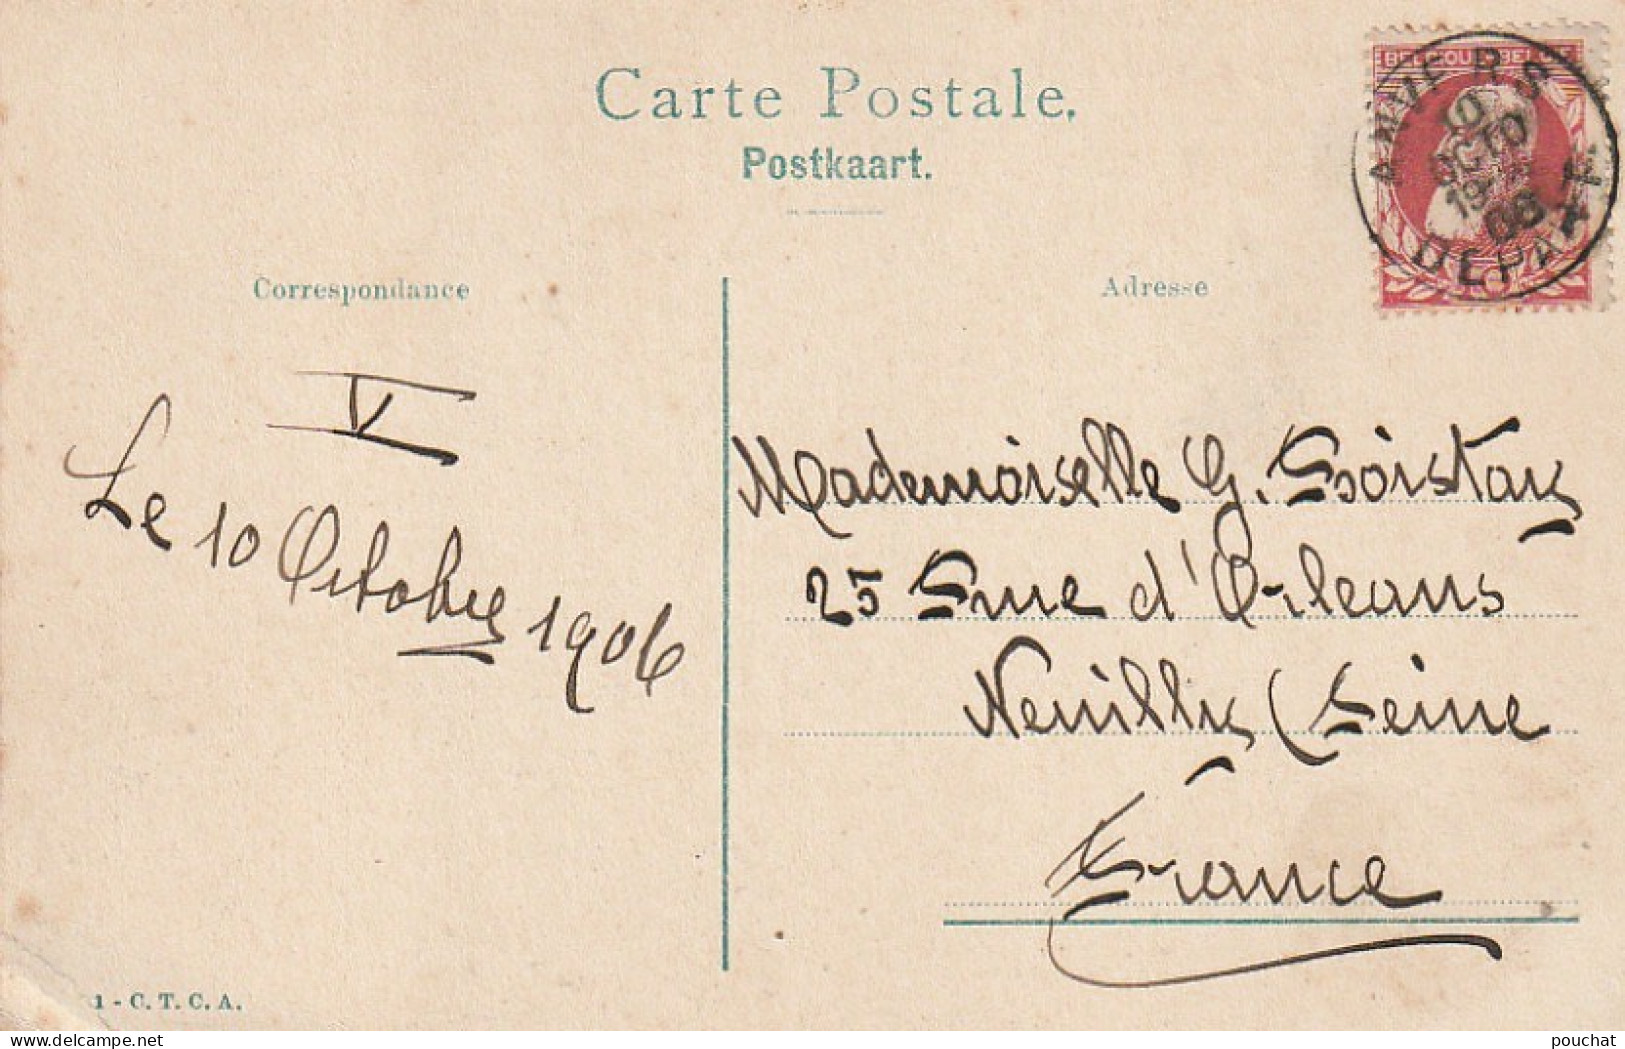 Carte Postale.
Postkaart.
Correspondance
Adresse
BELGIQUE BELGIË
ANVERS
10
OCTO
19
06
DEPART
V
Le 10 Octobre 1906
Mademoiselle G.
25 rue d'Orléans
Neuilly (Seine
France
1 - C. T. C. A.
www.delcampe.net
pouchat